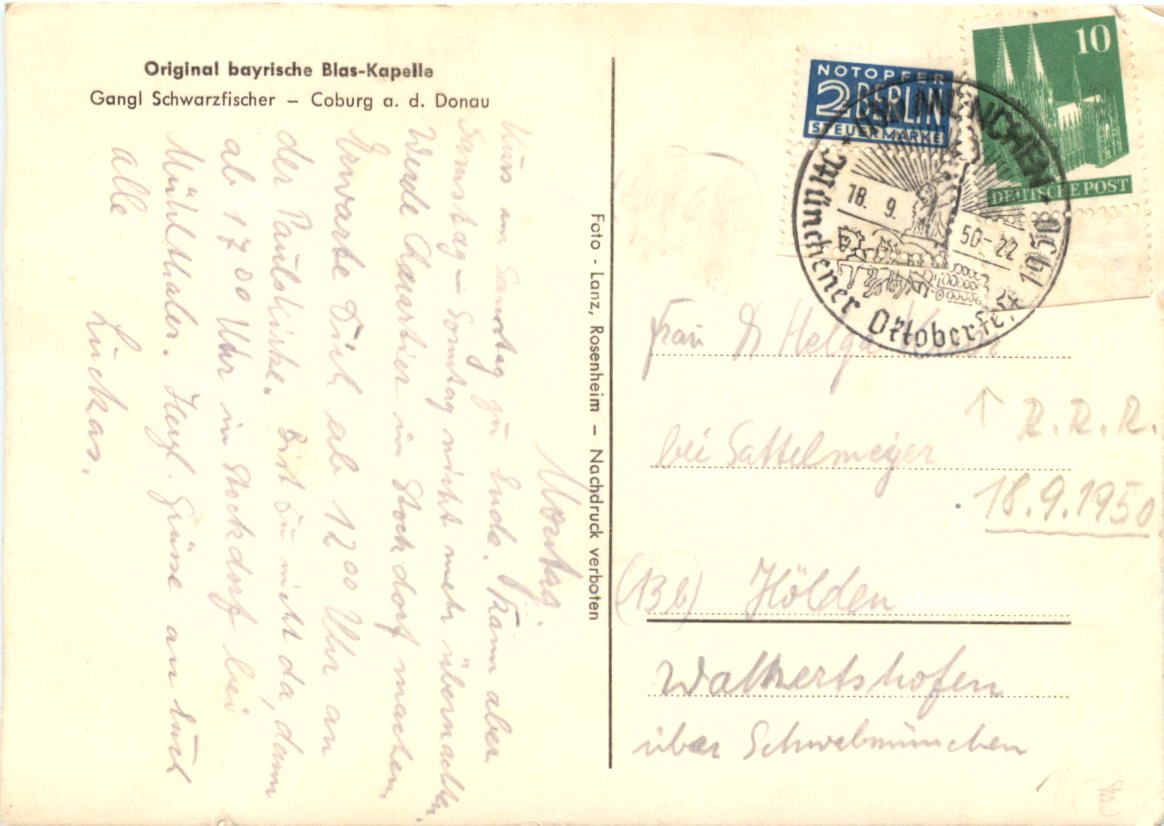 Original bayrische Blas-Kapelle
Gangl Schwarzfischer – Coburg a. d. Donau
Montag.
Kurs am Samstag zu Ende. Kann aber
Samstag – Sonntag nicht mehr übernachten.
Werde Quartier in Stockdorf machen.
Erwarte Dich ab 12 00 Uhr an
der Paulskirche. Bist Du nicht da, dann
ab 17 00 Uhr in Stockdorf bei
Mühlthaler. Herzl. Grüsse an Euch
alle
Luckas.
Foto - Lanz, Rosenheim – Nachdruck verboten
NOTOPFER
2 BERLIN
STEUERMARKE
10
DEUTSCHE POST
MÜNCHEN
18. 9. 50-22
Münchener Oktoberfest 1950
Frau Dr Helga
R. R. R.
bei Sattelmeyer
18.9.1950
(13b) Hölden
Walkertshofen
über Schwabmünchen